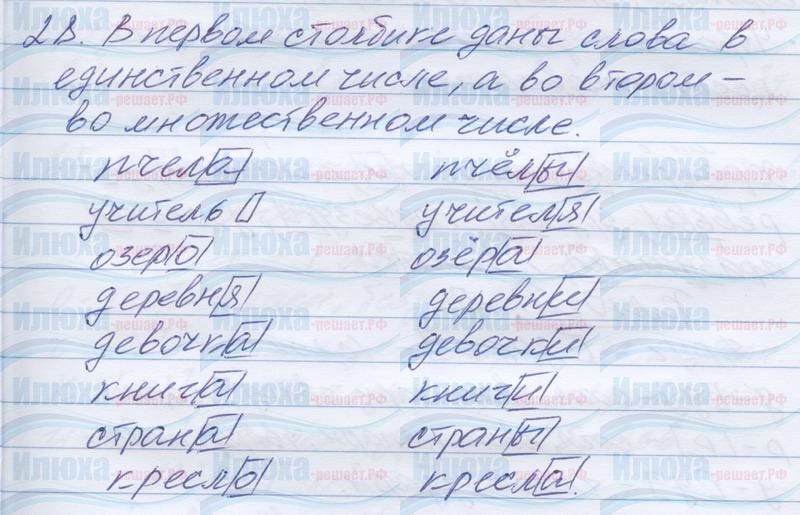 28. В первом столбике даны слова в
единственном числе, а во втором –
во множественном числе.
пчела пчёлы
учитель учителя
озеро озёра
деревня деревни
девочка девочки
книга книги
страна страны
кресло кресла.